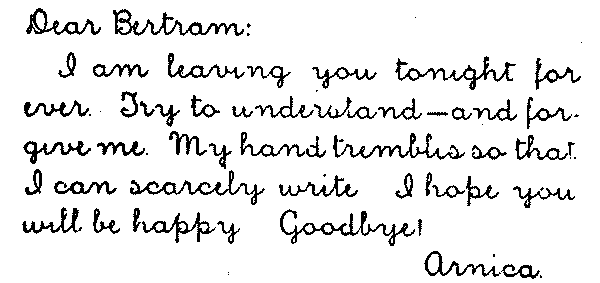 Dear Bertram:
I am leaving you tonight for
ever. Try to understand—and for-
give me. My hand trembles so that
I can scarcely write I hope you
will be happy Goodbye!
Arnica.